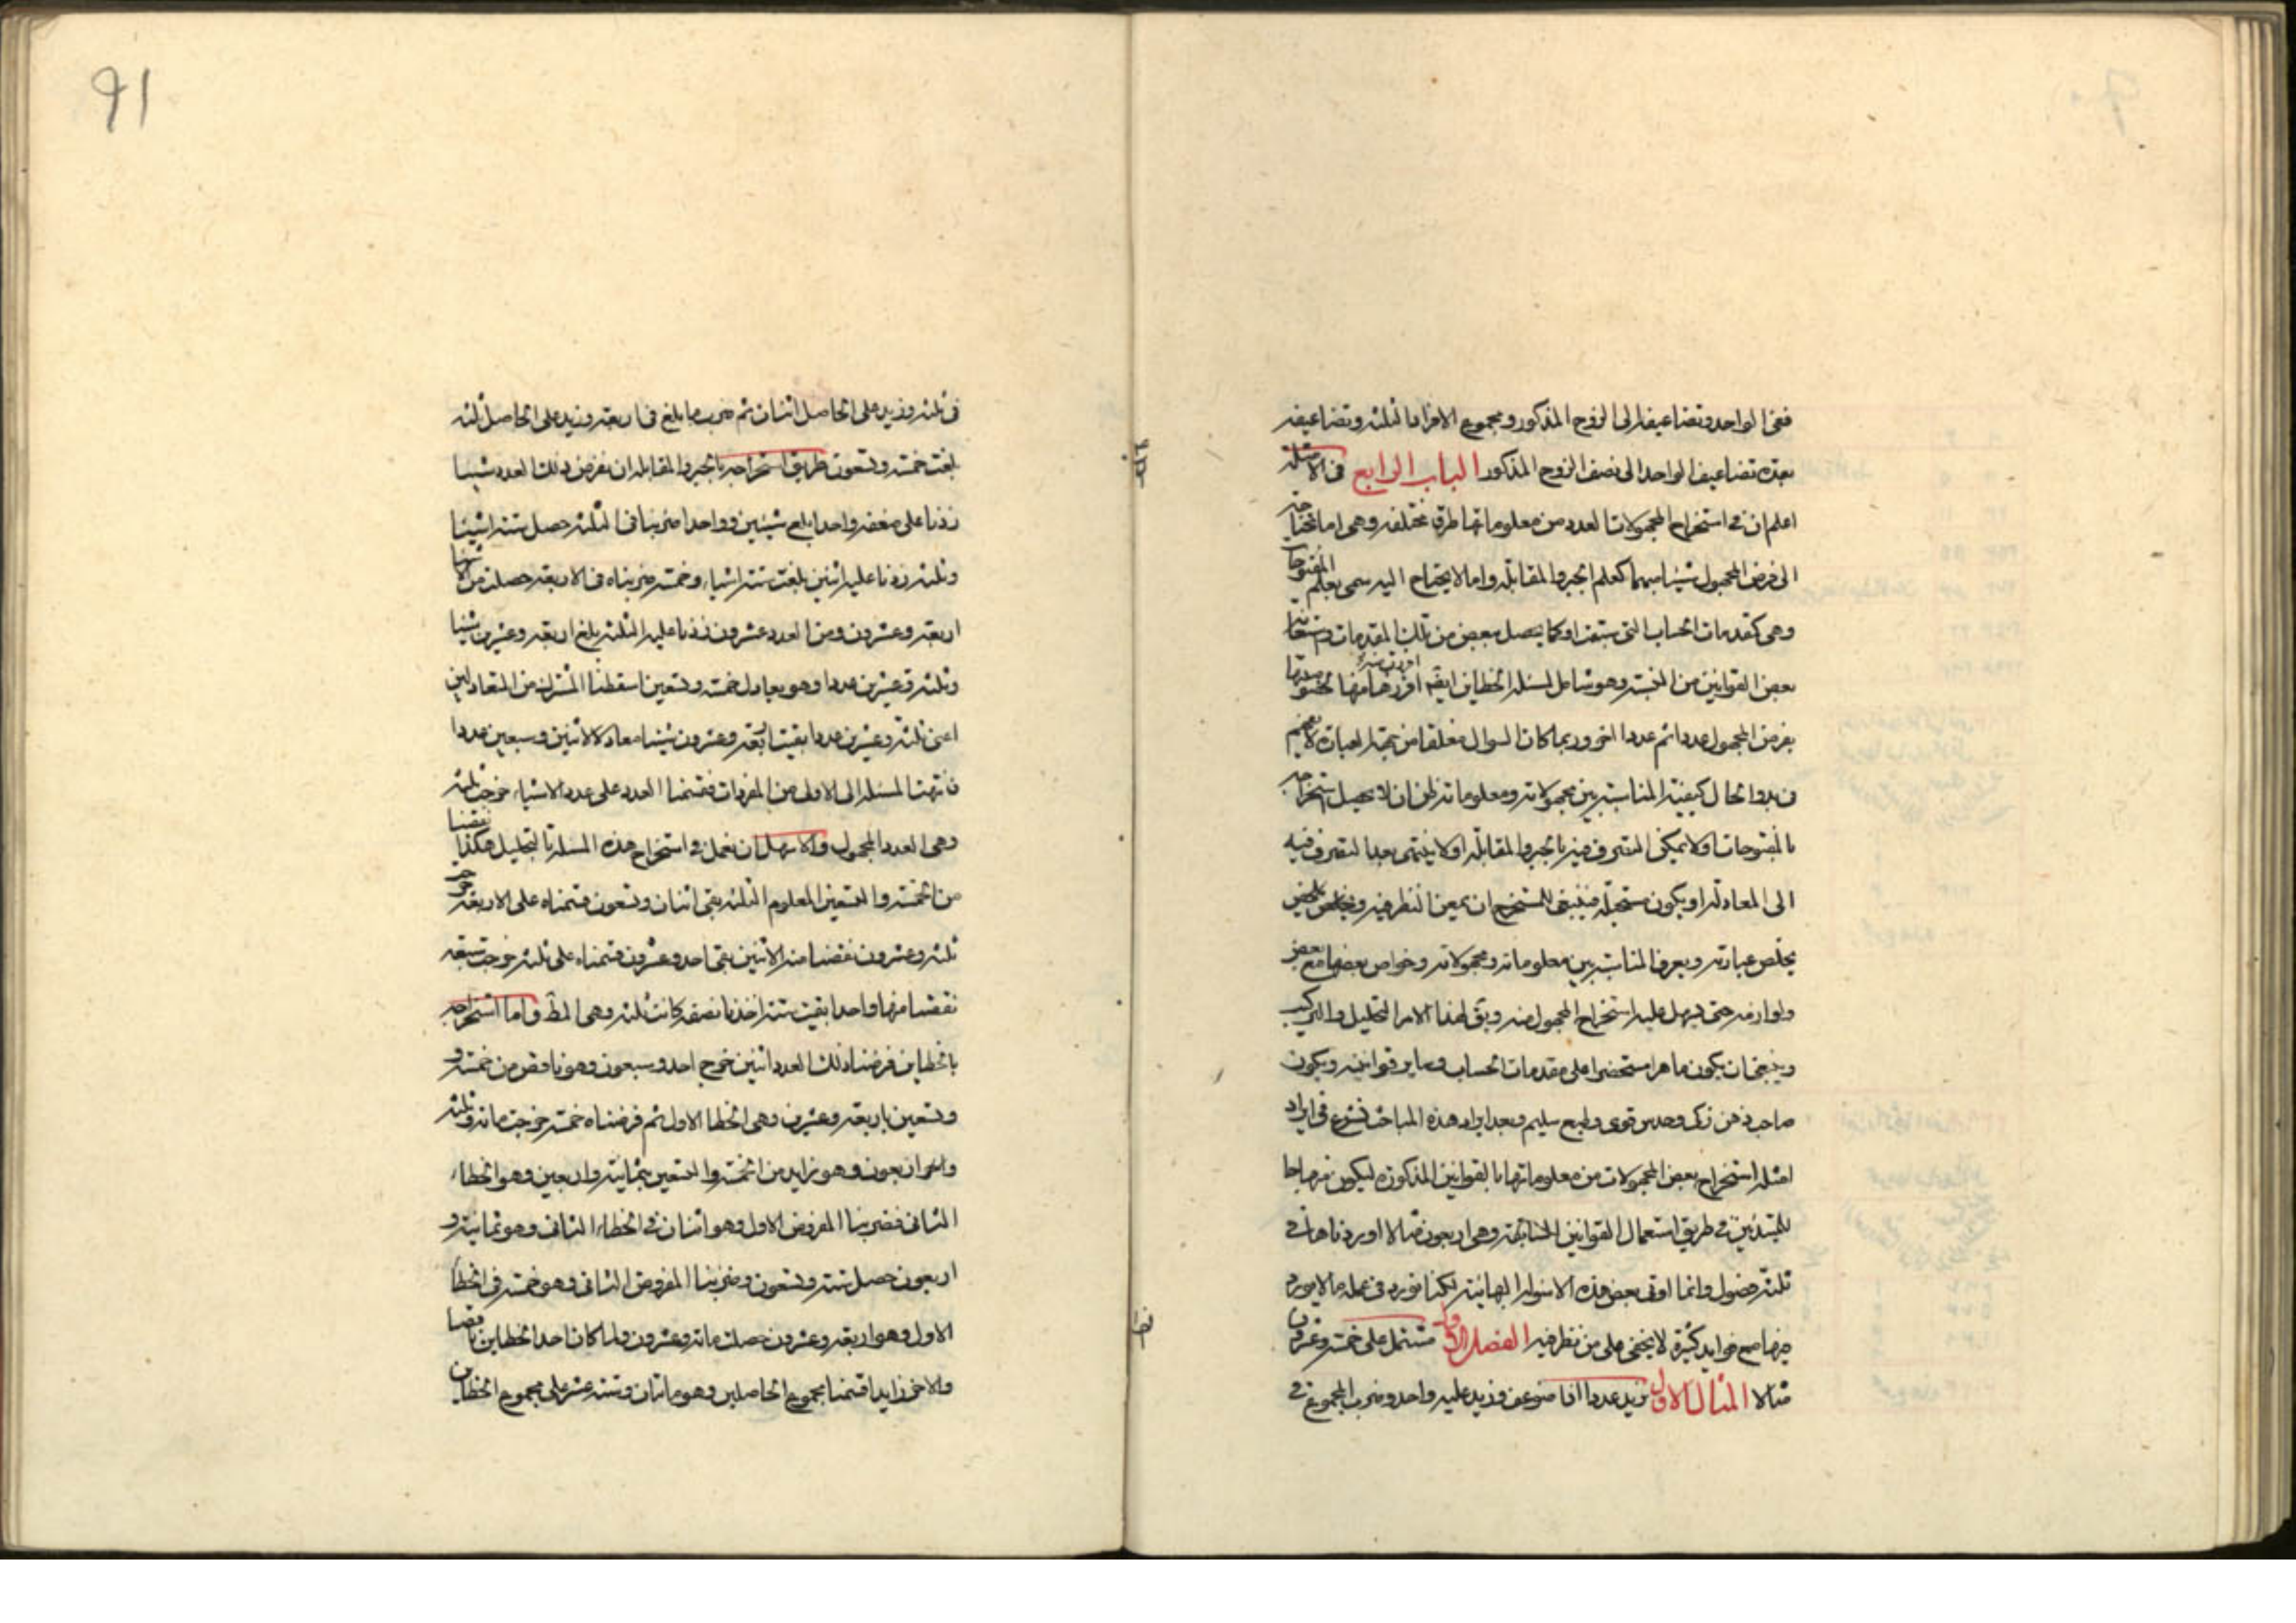 ففى الواحد وتضاعيفه الى الزوج المذكور ومجموع الافراد الثلثة وتضاعيفه
بعدة تضاعيف الواحد الى نصف الزوج المذكور الباب الرابع فى الامثلة
اعلم ان فى استخراج المجهولات العددية من معلوماتها طرق مختلفة وهى اما تحتاج
الى فرض المجهول شيئا مبهما كعلم الجبر والمقابلة واما لا يحتاج اليه سمى بعلم المفتوحات
وهى كمقدمات الحساب التى سبقت او كما يحصل بعض من تلك المقدمات
بعض القوانين من الهندسة وهو شامل لمسئلة الخطاين ايضا
يفرض المجهول عددا ثم عددا اخر وربما كان السوال مغلقا من جهة العبارة لا يفهم
فى بدو الحال كيفية المناسبة بين مجهولاته ومعلوماته لظن ان لا يحصل استخراجه
بالمفتوحات اولا يمكن التصرف فيه بالجبر والمقابلة اولا ينتهى بعد التصرف فيه
الى المعادلة او يكون مستحيلة فينبغى للمستخرج ان يمعن النظر فيه
يخلص عبارته ويعرف المناسبة بين معلوماته ومجهولاته وخواص بعضها مع بعض
ولوازمه حتى يسهل عليه استخراج المجهول منه ويق لهذا الامر التحليل والتركيب
وينبغى ان يكون ماهرا مستحضرا على مقدمات الحساب وساير قوانينه ويكون
صاحب ذهن زكى وحدس قوى وطبع سليم وبعد ايراد هذه المباحث نشرع فى ايراد
امثلة استخراج بعض المجهولات من معلوماتها بالقوانين المذكورة ليكون
للمبتدئين فى طريق استعمال القوانين السابقة وهى اربعون مثالا اوردناها فى
ثلثة فصول وانما اوتى بعض هذه الاسولة البهائية لكنا نورد فى عمله ما لا يورد
فيها مع فوايد كثيرة لا يخفى على من نظر فيه الفصل الاول مشتمل على خمسة وعشرون
مثالا المثال الاول نريد عددا اذا ضوعف وزيد عليه واحد وضرب المجموع فى
فى ثلثة وزيد على الحاصل اثنان ثم ضرب ما بلغ فى اربعة وزيد على الحاصل ثلثة
بلغت خمسة وتسعون طريق استخراجه بالجبر والمقابلة ان نفرض ذلك العدد شيئا
زدنا على ضعفه واحدا بلغ شيئين وواحدا ضربنا فى الثلثة حصل ستة اشياء
وثلثة زدنا عليه اثنين بلغت ستة اشياء وخمسة ضربناه فى الاربعة حصلت من الاشياء
اربعة وعشرون ومن العدد عشرون زدنا عليه الثلثة بلغ اربعة وعشرين شيئا
وثلثة وعشرين عددا وهو يعادل خمسة وتسعين اسقطنا المشترك من المتعادلين
اعنى ثلثة وعشرين عددا بقيت اربعة وعشرون شيئا معادلا لاثنين وسبعين عددا
فانتهت المسئلة الى الاولى من المفردات فقسمنا العدد على عدد الاشياء خرجت ثلثة
وهى العدد المجهول والاسهل ان نعمل فى استخراج هذه المسئلة بالتحليل هكذا نقصنا
من الخمسة والتسعين المعلوم الثلثة بقى اثنان وتسعون قسمناه على الاربعة خرج
ثلثة وعشرون نقصنا منه الاثنين بقى احد وعشرون قسمناه على ثلثة خرجت سبعة
نقصنا منها واحدا بقيت ستة اخذنا نصفه كانت ثلثة وهى المط واما استخراجه
بالخطاين فرضنا ذلك العدد اثنين خرج احد وسبعون وهو ناقص من خمسة و
وتسعين باربعة وعشرين وهى الخطا الاول ثم فرضناه خمسة خرجت مائة وثلثة
واربعون وهو زايد من الخمسة والتسعين بثمانية واربعين وهو الخطاء
الثانى فضربنا المفروض الاول وهو اثنان فى الخطاء الثانى وهو ثمانية و
اربعون حصل ستة وتسعون وضربنا المفروض الثانى وهو خمسة فى الخطا
الاول وهو اربعة وعشرون حصلت مائة وعشرون ولما كان احد الخطاين ناقصا
والاخر زايدا قسمنا مجموع الحاصلين وهو مائتان وستة عشر على مجموع الخطاين
91